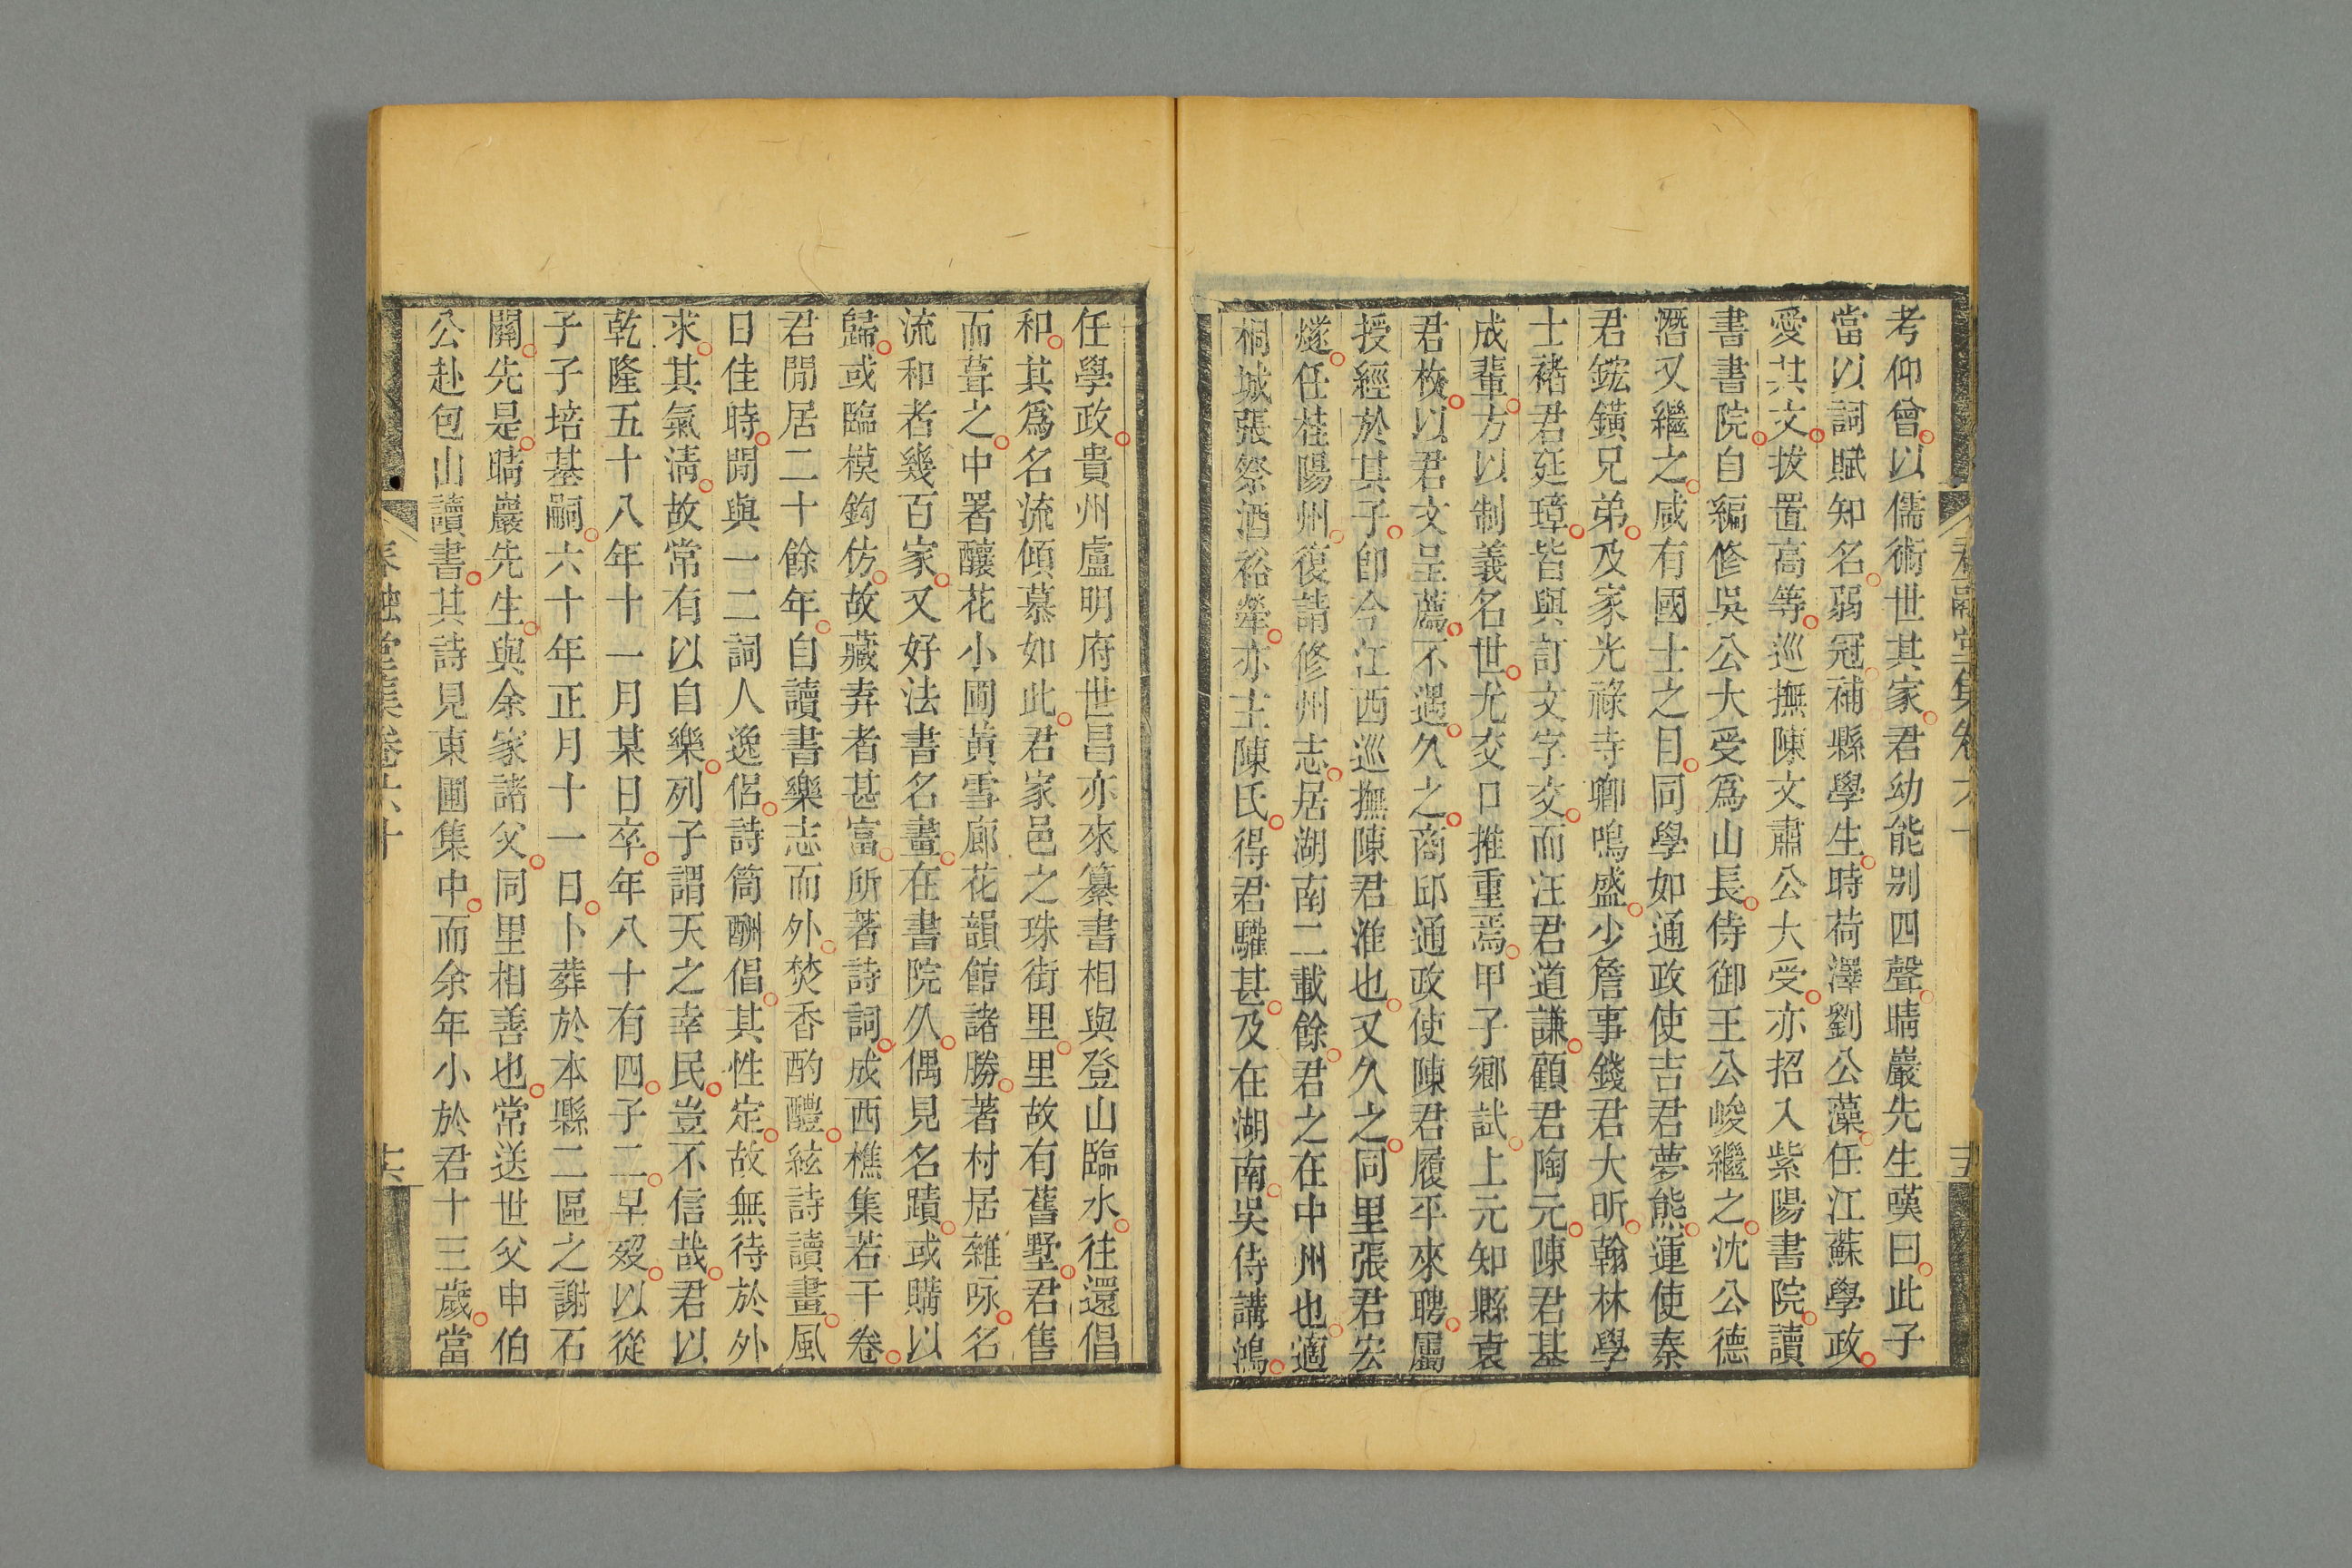 考仰曾以儒術世其家君幼能別四聲晴巖先生嘆曰此子
當以詞賦知名弱冠補縣學生時荷澤劉公藻任江蘇學政
愛其文拔置高等巡撫陳文肅公大受亦招入紫陽書院讀
書書院自編修吳公大受爲山長侍御王公峻繼之沈公德
潛又繼之咸有國士之目同學如通政使吉君夢熊運使秦
君鋐鐄兄弟及家光祿寺卿鳴盛少詹事錢君大昕翰林學
士褚君廷璋皆與訂文字交而汪君道謙顧君陶元陳君基
成輩方以制義名世尤交口推重焉甲子鄉試上元知縣袁
君枚以君文呈薦不遇久之商邱通政使陳君履平來聘屬
授經於其子卽今江西巡撫陳君淮也又久之同里張君宏
燧任桂陽州復請修州志居湖南二載餘君之在中州也適
桐城張祭酒裕犖亦主陳氏得君驩甚及在湖南吳侍講鴻
任學政貴州盧明府世昌亦來纂書相與登山臨水往還倡
和其爲名流傾慕如此君家邑之珠街里里故有舊墅君售
而葺之中署釀花小圃黃雪廊花韻館諸勝著村居雜咏名
流和者幾百家又好法書名畫在書院久偶見名蹟或購以
歸或臨模鉤仿故藏弆者甚富所著詩詞成西樵集若干卷
君閒居二十餘年自讀書樂志而外焚香酌醴絃詩讀畫風
日佳時閒與一二詞人逸侶詩筒酬倡其性定故無待於外
求其氣淸故常有以自樂列子謂天之幸民豈不信哉君以
乾隆五十八年十一月某日卒年八十有四子二早歿以從
子子培基嗣六十年正月十一日卜葬於本縣二區之謝石
關先是晴巖先生與余家諸父同里相善也常送世父申伯
公赴包山讀書其詩見東圃集中而余年小於君十三歲當
春融堂集卷六十
十六